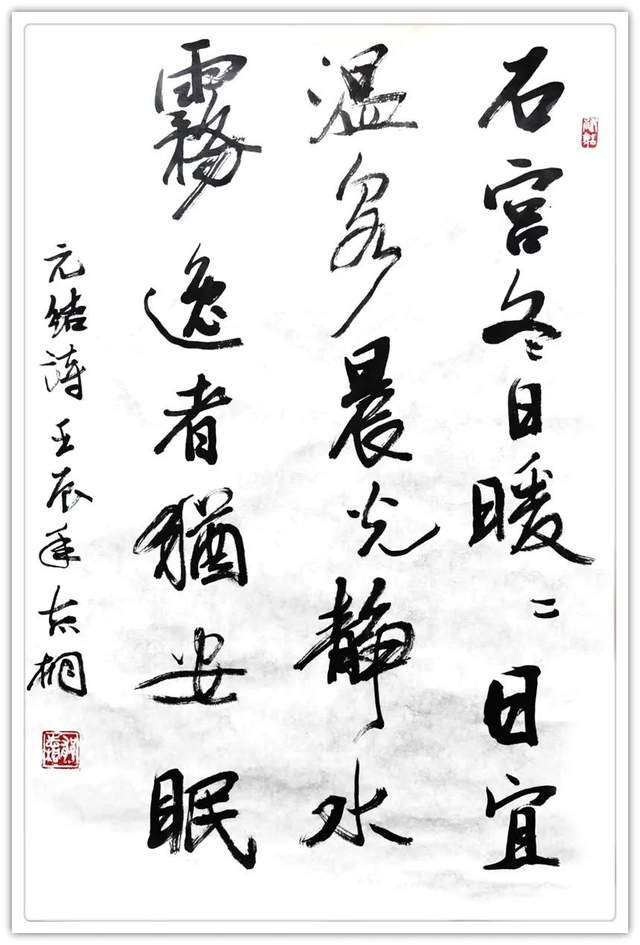 石宫冬日暖〻日宜
温泉晨光静水
霧逸者猶安眠
元结诗壬辰年桐